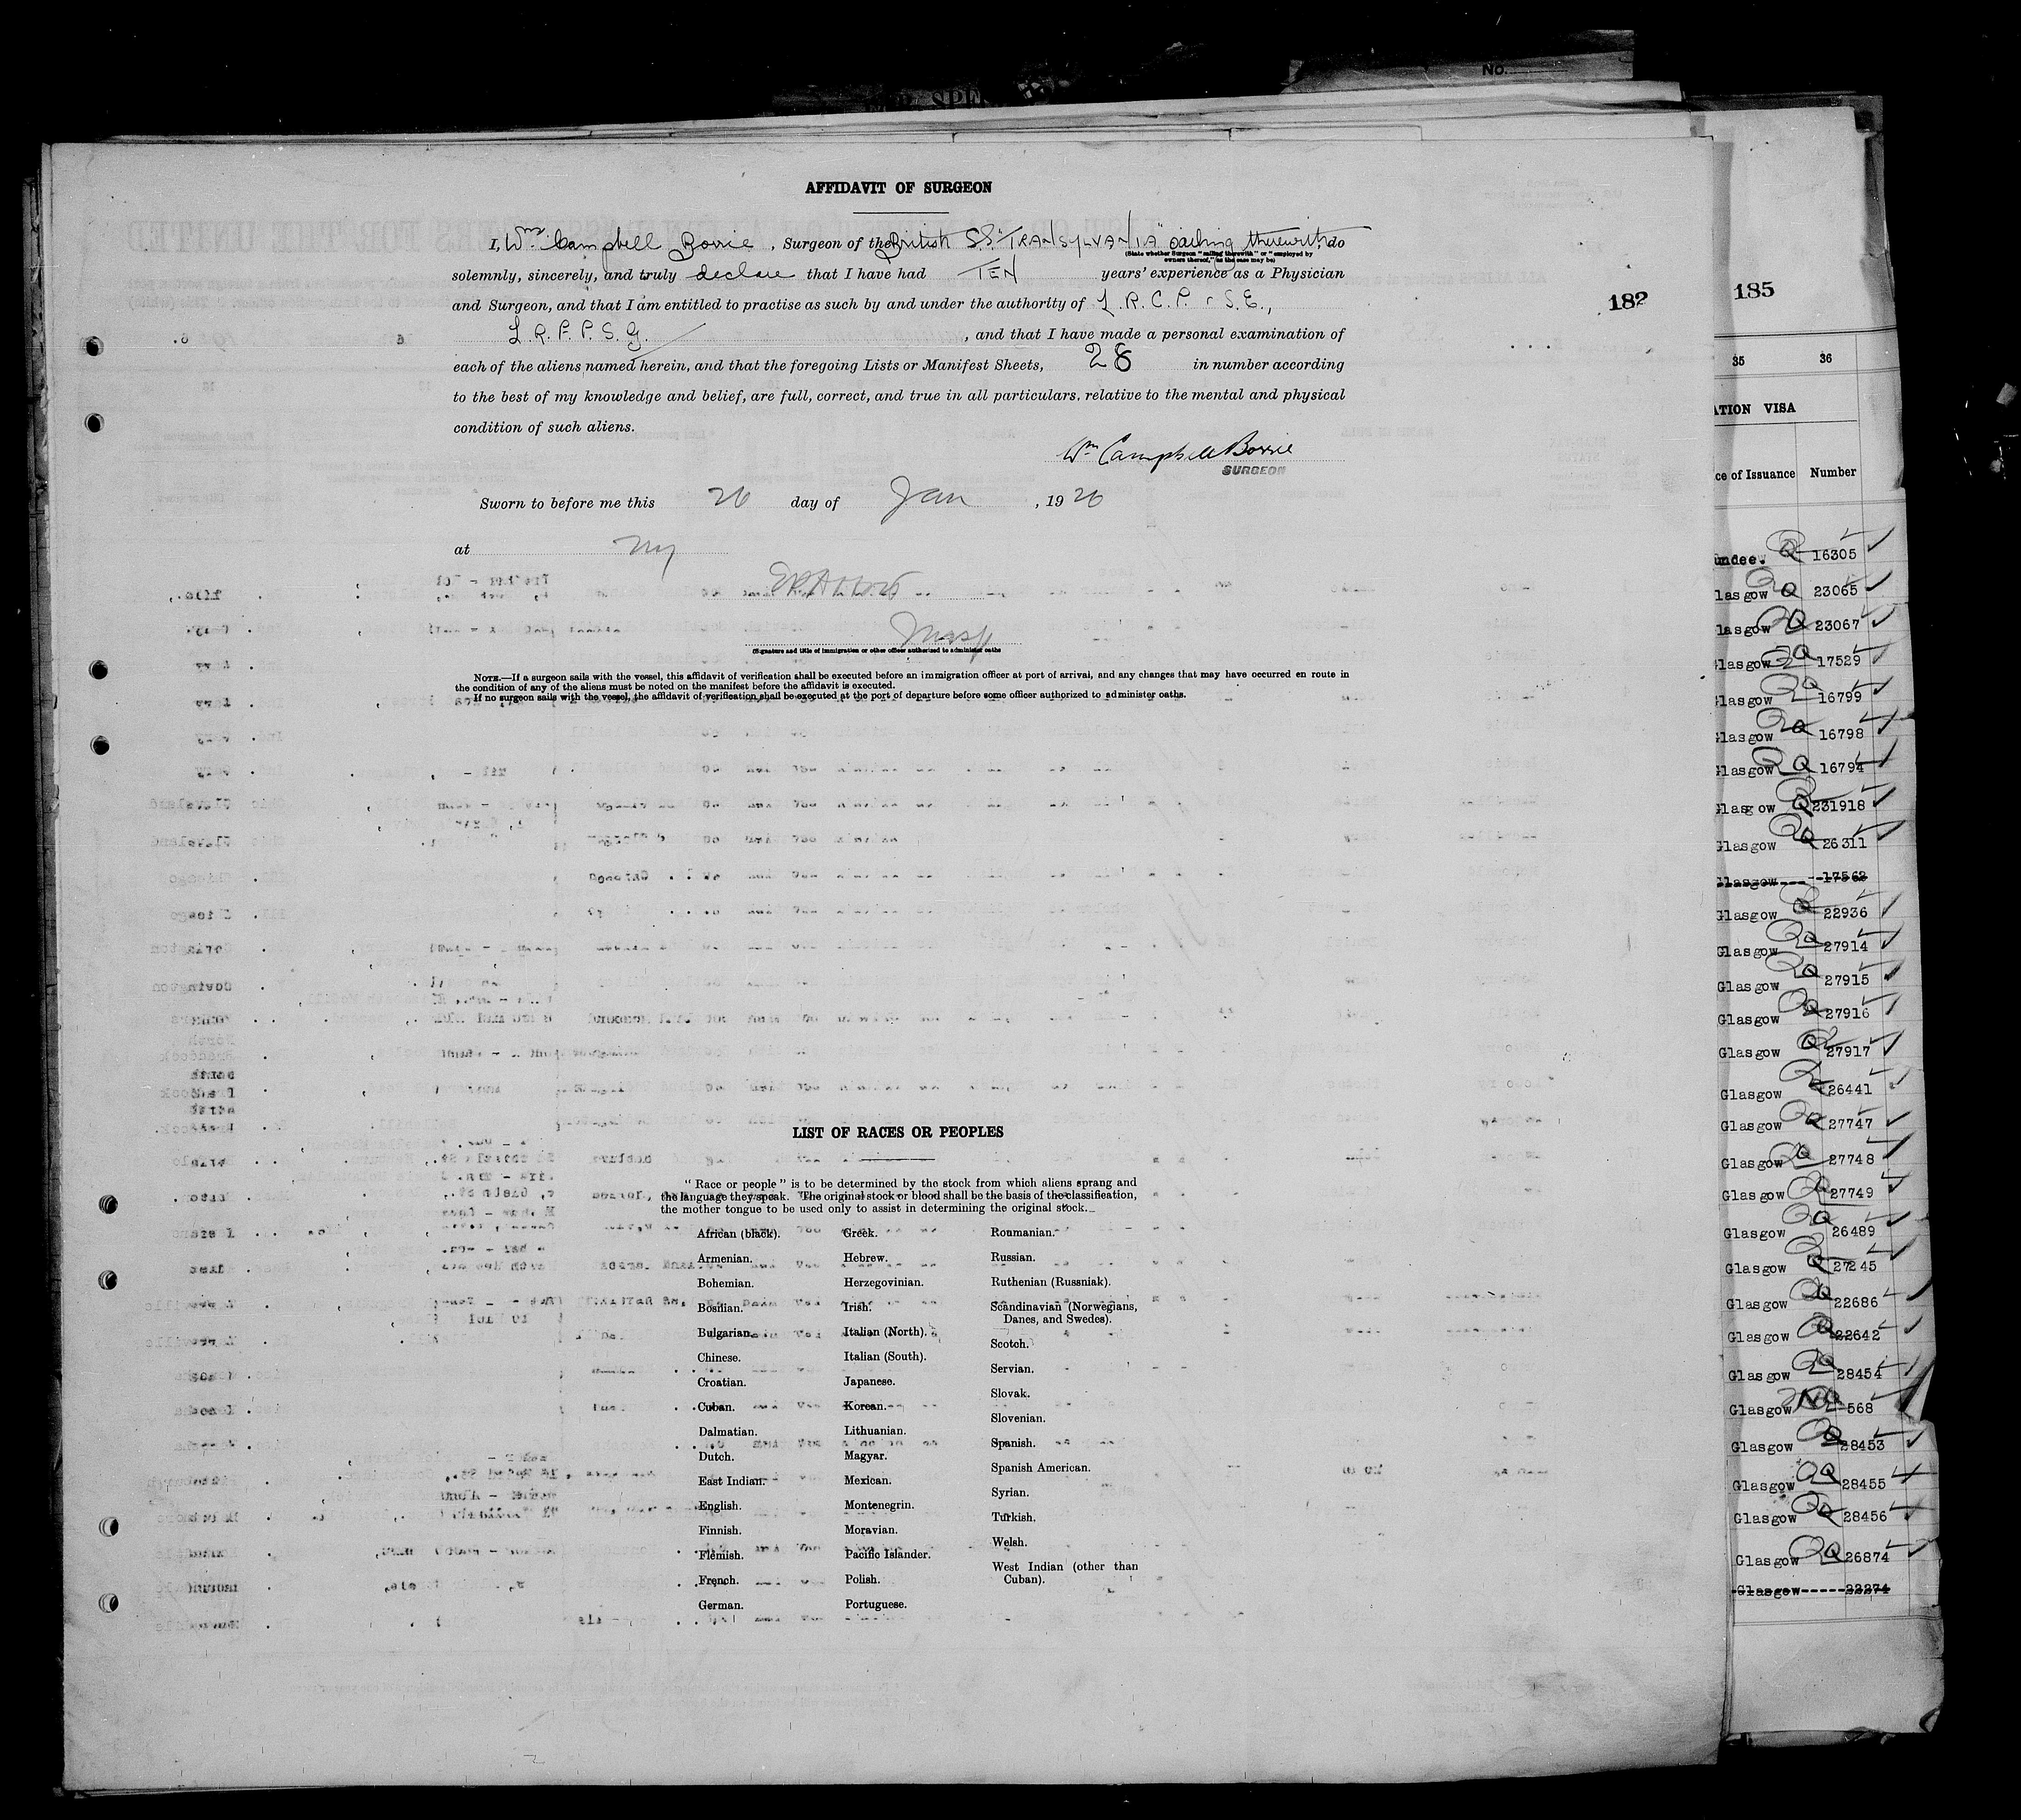 No.
AFFIDAVIT OF SURGEON
I, Wm. Campbell Borrie, Surgeon of the British S.S. "TRANSYLVANIA" sailing therewith, do
(State whether Surgeon "sailing therewith" or "employed by
owners thereof," as the case may be)
solemnly, sincerely, and truly declare that I have had TEN years' experience as a Physician
and Surgeon, and that I am entitled to practise as such by and under the authority of L.R.C.P. & S.E.,
L.R.F.P.S.G. , and that I have made a personal examination of
each of the aliens named herein, and that the foregoing Lists or Manifest Sheets, 28 in number according
to the best of my knowledge and belief, are full, correct, and true in all particulars, relative to the mental and physical
condition of such aliens.
Wm Campbell Borrie
SURGEON
Sworn to before me this 26 day of Jan , 1926
at NY
Insp
(Signature and title of immigration or other officer authorized to administer oaths
NOTE.—If a surgeon sails with the vessel, this affidavit of verification shall be executed before an immigration officer at port of arrival, and any changes that may have occurred en route in
the condition of any of the aliens must be noted on the manifest before the affidavit is executed.
If no surgeon sails with the vessel, the affidavit of verification shall be executed at the port of departure before some officer authorized to administer oaths.
LIST OF RACES OR PEOPLES
"Race or people" is to be determined by the stock from which aliens sprang and
the language they speak. The original stock or blood shall be the basis of the classification,
the mother tongue to be used only to assist in determining the original stock.
African (black).
Armenian.
Bohemian.
Bosnian.
Bulgarian.
Chinese.
Croatian.
Cuban.
Dalmatian.
Dutch.
East Indian.
English.
Finnish.
Flemish.
French.
German.
Greek.
Hebrew.
Herzegovinian.
Irish.
Italian (North).
Italian (South).
Japanese.
Korean.
Lithuanian.
Magyar.
Mexican.
Montenegrin.
Moravian.
Pacific Islander.
Polish.
Portuguese.
Roumanian.
Russian.
Ruthenian (Russniak).
Scandinavian (Norwegians,
Danes, and Swedes).
Scotch.
Servian.
Slovak.
Slovenian.
Spanish.
Spanish American.
Syrian.
Turkish.
Welsh.
West Indian (other than
Cuban).
182
185
35 36
ATION VISA
ce of Issuance Number
undee. Q 16305
lasgow Q 23065
lasgow Q 23067
lasgow Q 17529
lasgow Q 16799
lasgow Q 16798
lasgow Q 16794
Glasgow Q 231918
Glasgow Q 26311
Glasgow 17562
Glasgow Q 22936
Glasgow Q 27914
Glasgow Q 27915
Glasgow Q 27916
Glasgow Q 27917
Glasgow Q 26441
Glasgow Q 27747
Glasgow Q 27748
Glasgow Q 27749
Glasgow Q 26489
Glasgow Q 27245
Glasgow Q 22686
Glasgow Q 22642
Glasgow Q 28454
Glasgow 568
Glasgow Q 28453
Glasgow Q 28455
Glasgow Q 28456
Glasgow Q 26874
Glasgow 22274